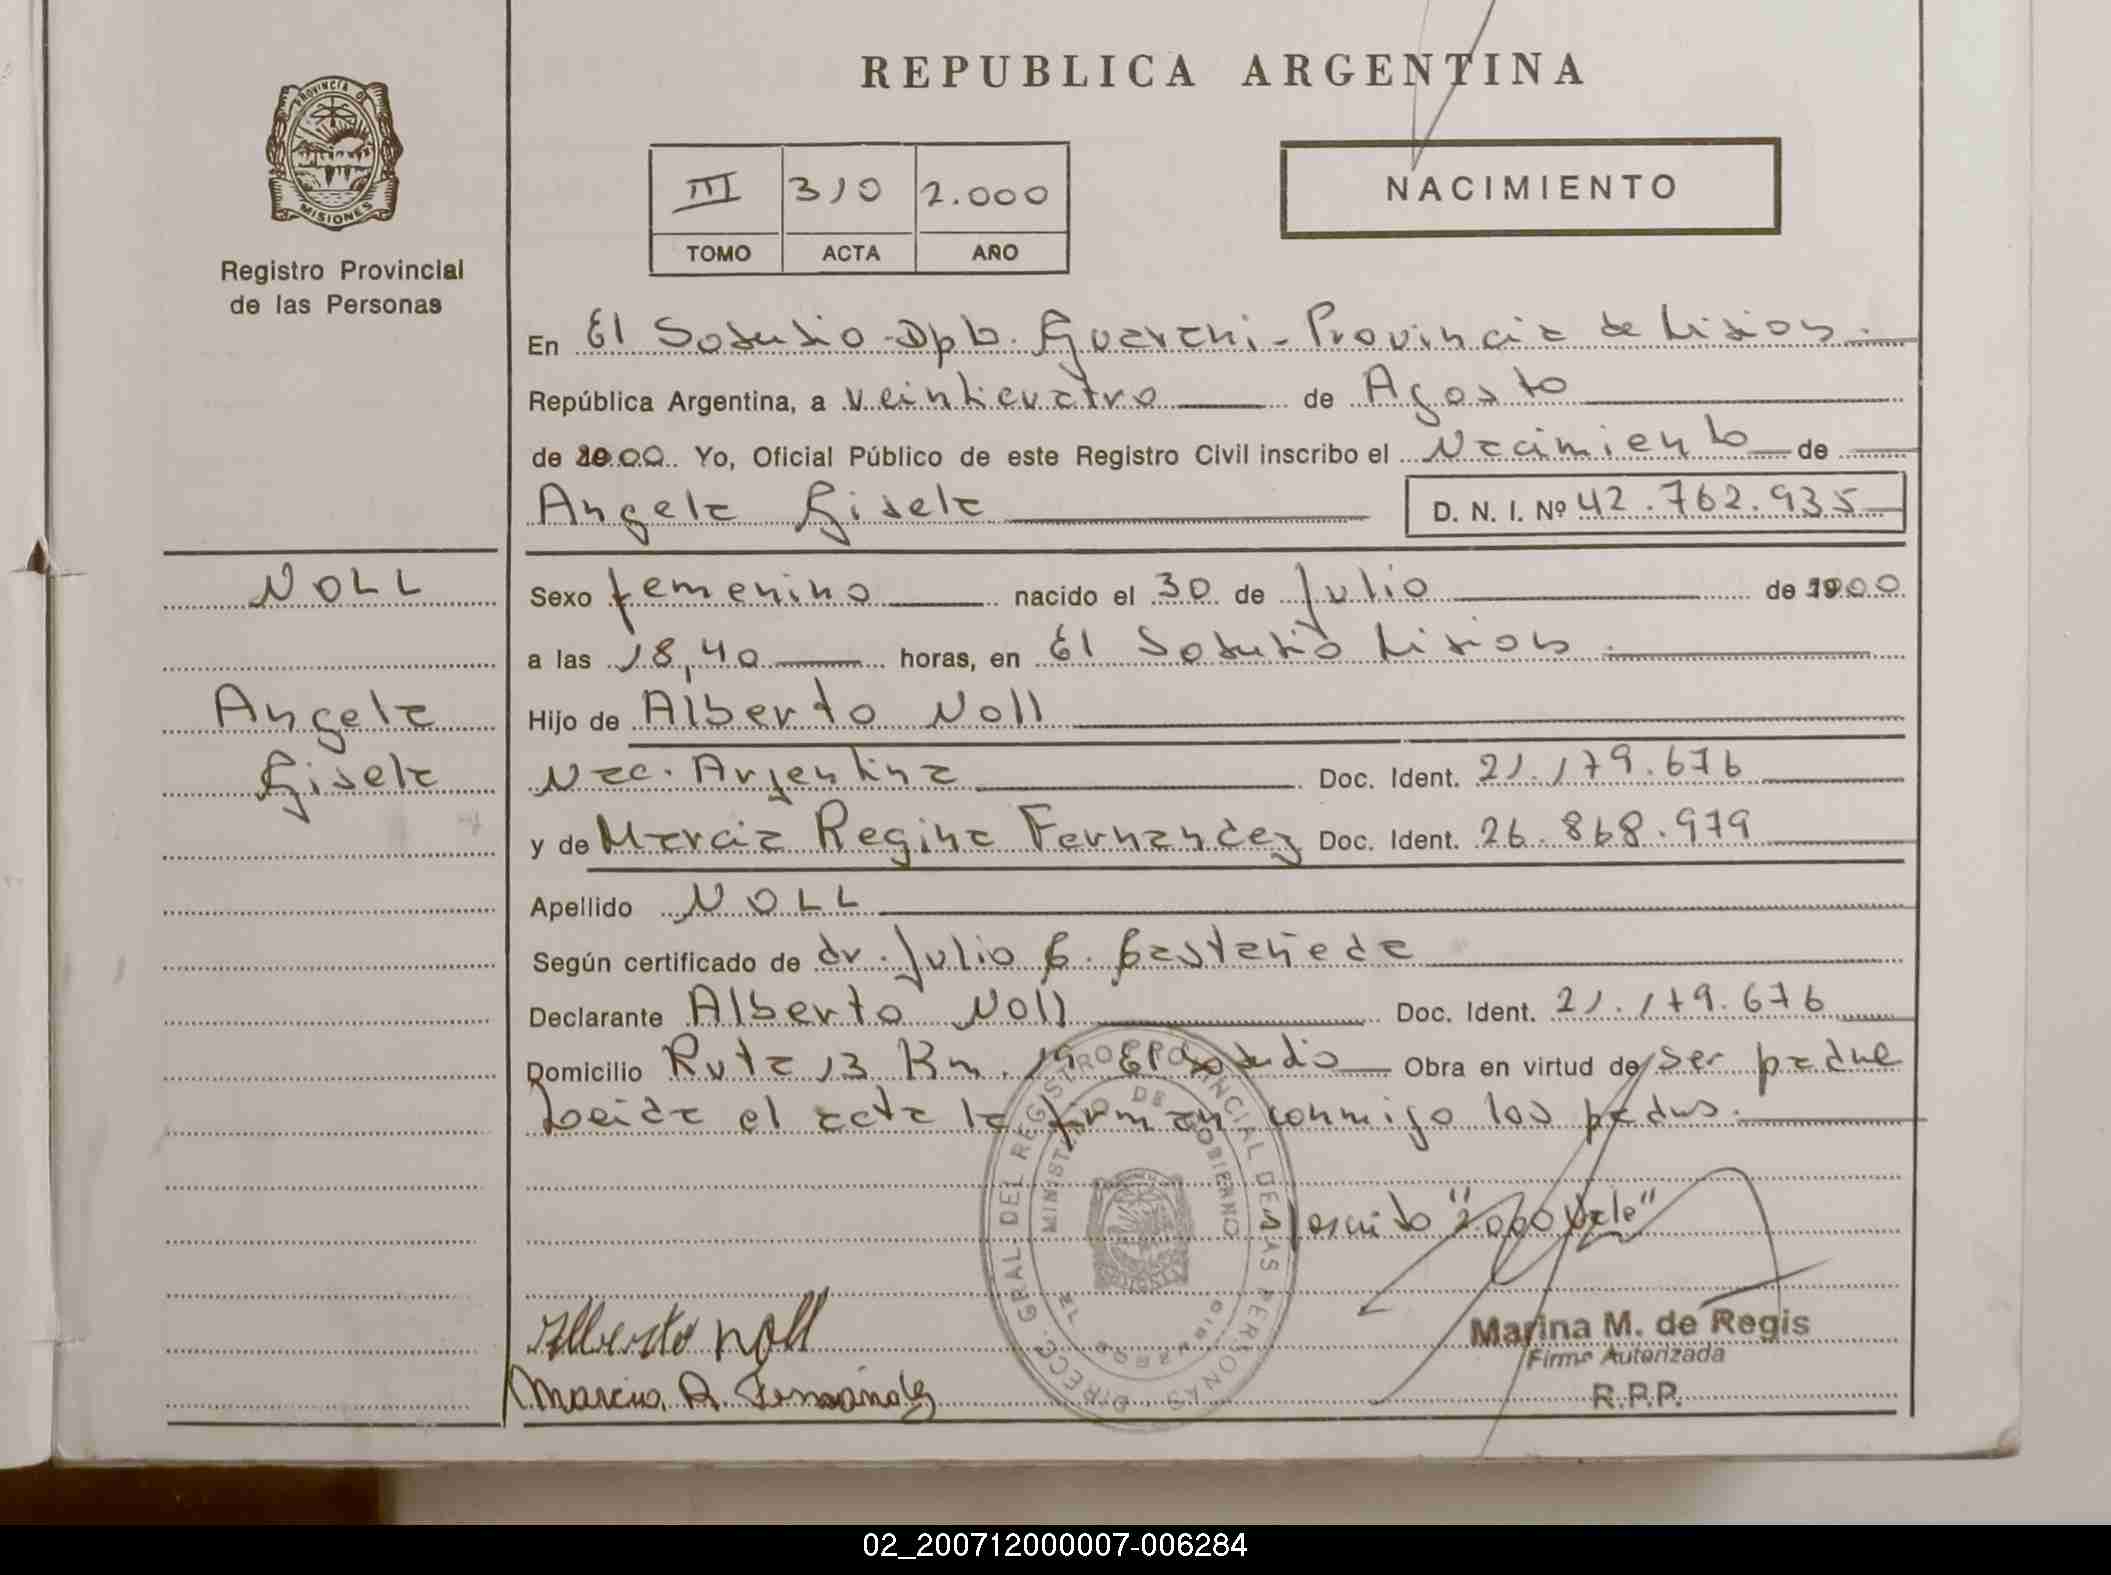 REPUBLICA ARGENTINA
PROVINCIA DE
MISIONES
Registro Provincial
de las Personas
III 310 2.000
TOMO ACTA AÑO
NACIMIENTO
En El Soberbio - Dpto. Guarani - Provincia de Misiones.
República Argentina, a veinticuatro de Agosto
de 2000. Yo, Oficial Público de este Registro Civil inscribo el Nacimiento de
Angela Gisela D. N. I. Nº 42.762.935
NOLL
Angela
Gisela
Sexo femenino nacido el 30 de Julio de 2000
a las 18,40 horas, en El Soberbio Misiones.
Hijo de Alberto Noll
Nac. Argentina Doc. Ident. 21.179.676
y de Marcia Regina Fernandez Doc. Ident. 26.868.979
Apellido NOLL
Según certificado de dr. Julio C. Castañeda
Declarante Alberto Noll Doc. Ident. 21.179.676
Domicilio Ruta 13 Km. 19 El Soberbio Obra en virtud de ser padre
Leida el acta la firman conmigo los padres.
"2.000 Vale"
DIRECC. GRAL. DEL REGISTRO PROVINCIAL DE LAS PERSONAS
MINISTERIO DE GOBIERNO
Alberto Noll
Marcia R. Fernandez
Marina M. de Regis
Firma Autorizada
R.P.P.
02_200712000007-006284